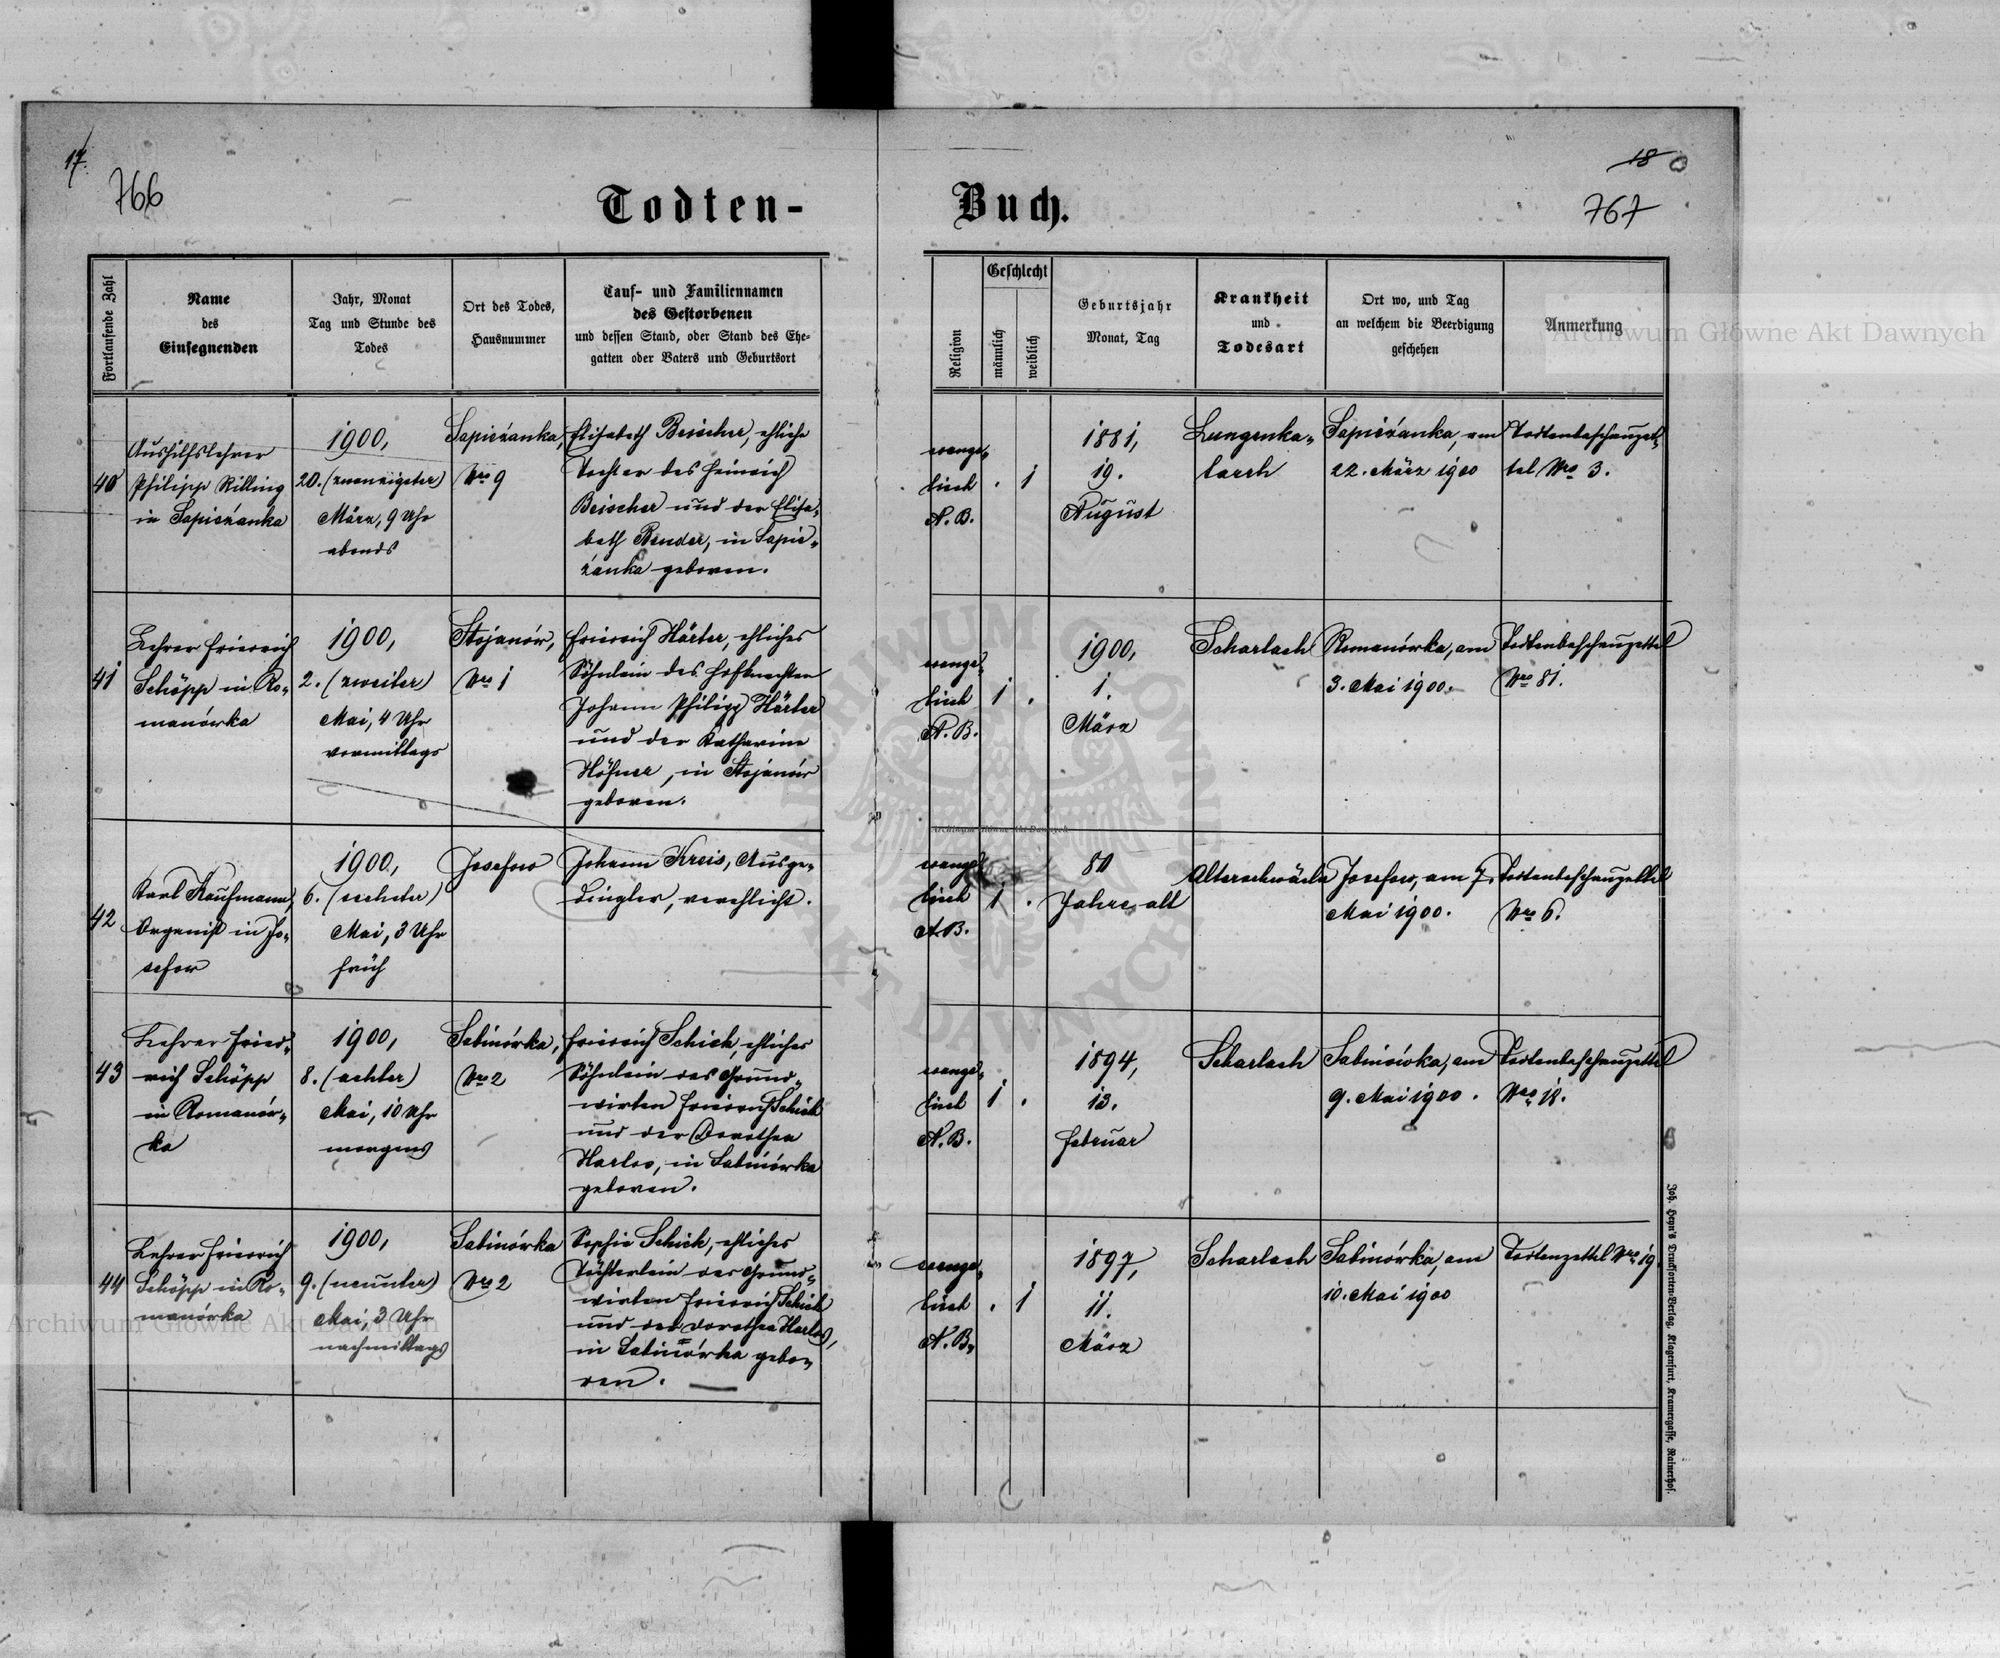 17.
18
766
767
Todten-
Buch.
Fortlaufende Zahl
Name
des
Einsegnenden
Jahr, Monat
Tag und Stunde des
Todes
Ort des Todes,
Hausnummer
Tauf- und Familiennamen
des Gestorbenen
und dessen Stand, oder Stand des Ehe-
gatten oder Vaters und Geburtsort
Religion
Geschlecht
männlich
weiblich
Geburtsjahr
Monat, Tag
Krankheit
und
Todesart
Ort wo, und Tag
an welchem die Beerdigung
geschehen
Anmerkung
40
Aushilfslehrer
Philipp Rilling
in Sapieżanka
1900,
20. (zwanzigster)
März, 9 Uhr
abends
Sapieżanka,
Nro 9
Elisabeth Beischer, ehliche
Tochter des Heinrich
Beischer und der Elisa-
beth Bender, in Sapie-
żanka geboren.
evange-
lisch
A. B.
.
1
1881,
19.
August
Lungenka-
tarrh
Sapieżanka, am
22. März 1900
Todtenbeschauzet-
tel Nro 3.
41
Lehrer Friedrich
Schöpp in Ro-
manówka
1900,
2. (zweiter)
Mai, 4 Uhr
vormittags
Stojanów,
Nro 1
Friedrich Härter, ehliches
Söhnlein des Hofknechten
Johann Philipp Härter
und der Katharine
Höfner, in Stojanów
geboren.
evange-
lisch
A. B.
1
.
1900,
1.
März
Scharlach
Romanówka, am
3. Mai 1900.
Todtenbeschauzettel
Nro 81.
42
Karl Kaufmann
Organist in Jo-
sefow
1900,
6. (sechster)
Mai, 3 Uhr
früh
Josefow
Johann Kreis, Ausge-
dingler, verehlicht.
evange-
lisch
A. B.
1
.
80
Jahre alt
Altersschwäche
Josefow, am 7.
Mai 1900.
Todtenbeschauzettel
Nro 6.
43
Lehrer Fried-
rich Schöpp
in Romanów-
ka
1900,
8. (achter)
Mai, 10 Uhr
morgens
Sabinówka,
Nro 2
Friedrich Schick, ehliches
Söhnlein des Grund-
wirten Friedrich Schick
und der Dorothea
Harlos, in Sabinówka
geboren.
evange-
lisch
A. B.
1
.
1894,
13.
Februar
Scharlach
Sabinówka, am
9. Mai 1900.
Todtenbeschauzettel
Nro 18.
44
Lehrer Friedrich
Schöpp in Ro-
manówka
1900,
9. (neunter)
Mai, 3 Uhr
nachmittags
Sabinówka
Nro 2
Sophie Schick, ehliches
Töchterlein des Grund-
wirten Friedrich Schick
und der Dorothea Harlos,
in Sabinówka gebo-
ren.
evange-
lisch
A. B.
.
1
1897,
11.
März
Scharlach
Sabinówka, am
10. Mai 1900
Todtenzettel Nro 19
Joh. Heyn's Drucksorten-Verlag, Klagenfurt, Kramergasse, Rainerhof.
Archiwum Główne Akt Dawnych
Archiwum Główne Akt Dawnych
Archiwum Główne Akt Dawnych
ARCHIWUM GŁÓWNE AKT DAWNYCH